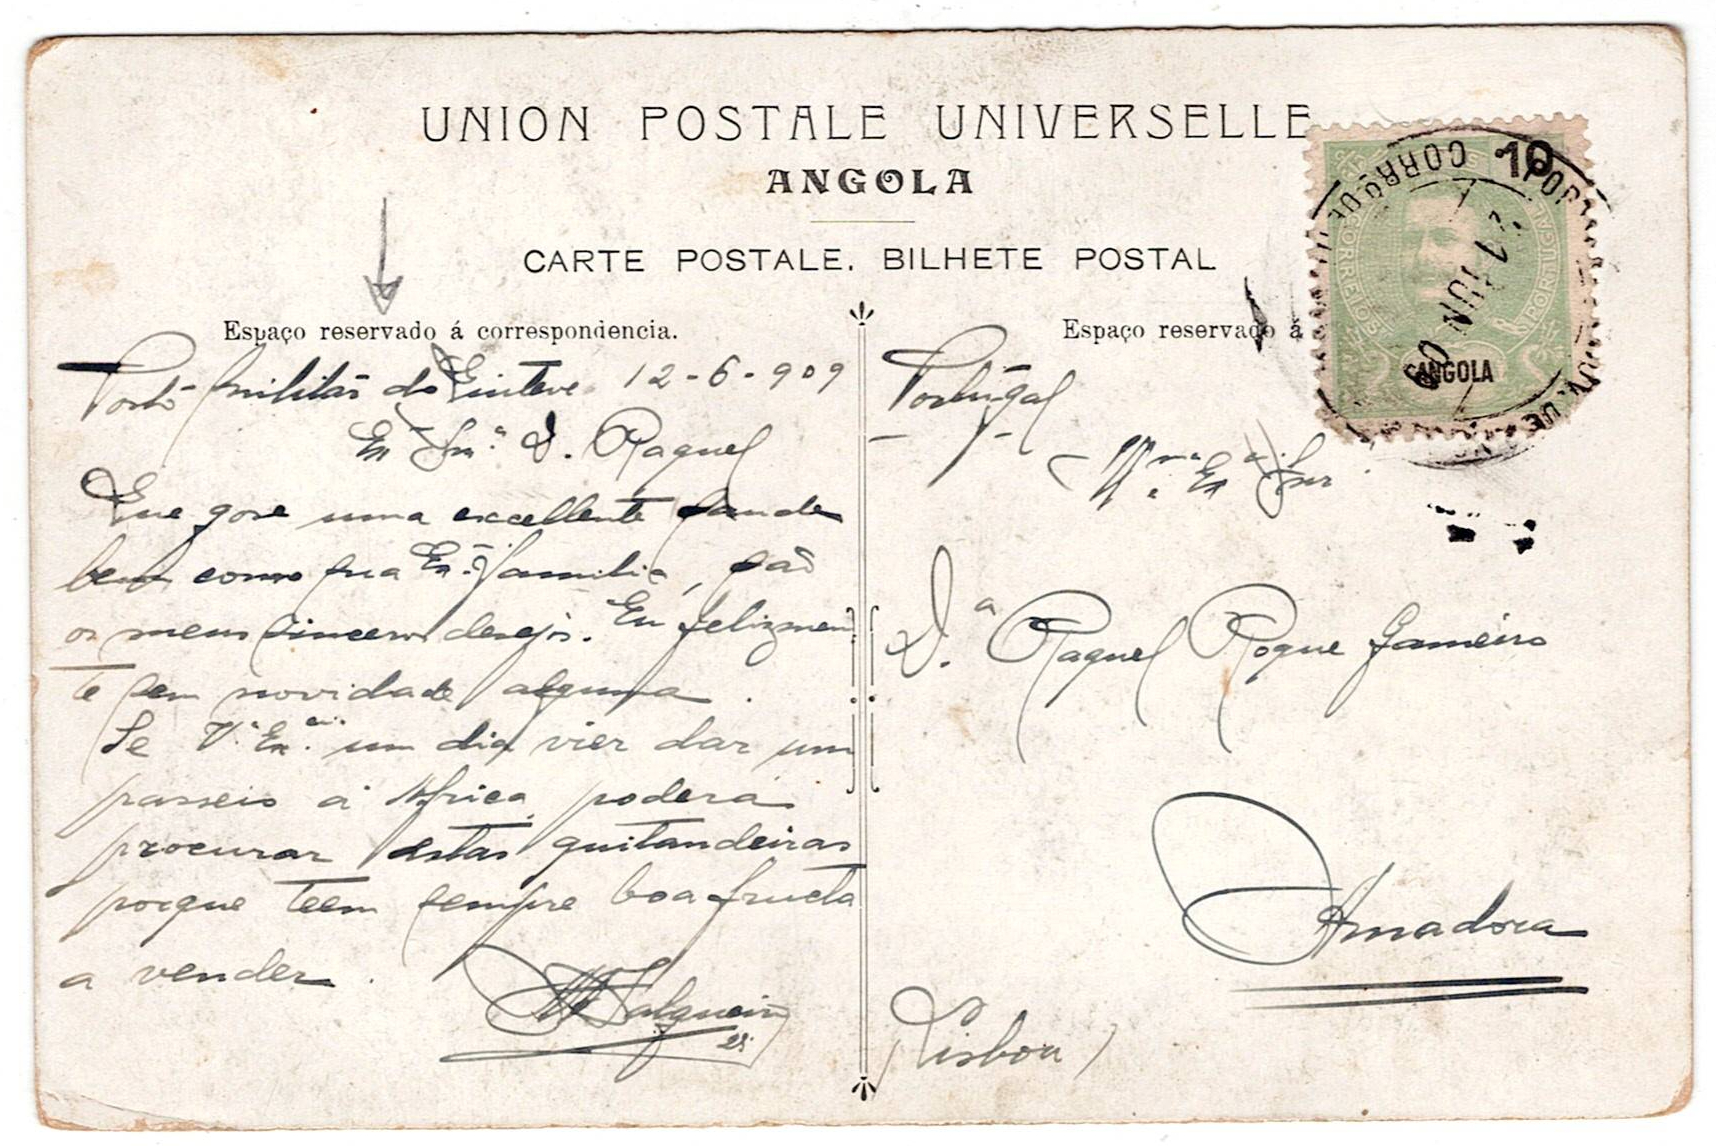 UNION POSTALE UNIVERSELLE
ANGOLA
CARTE POSTALE. BILHETE POSTAL
Espaço reservado á correspondencia.
Posto militar do 12-6-909
Exª Snrª D. Raquel
Que gose uma excellente saude
bem como sua Exª familia, são
os meus sinceros desejos. Eu felizmen
te sem novidade alguma.
Se V.ª Ex.cia um dia vier dar um
passeio á Africa, poderá
procurar estas quitandeiras
porque teem sempre boa fructa
a vender.
Salgueiro
Espaço reservado á
10
CORREIOS
PORTUGAL
ANGOLA
JUN 09
Portugal
Snr
D.ª Raquel Roque Gameiro
Amadora
Lisboa)